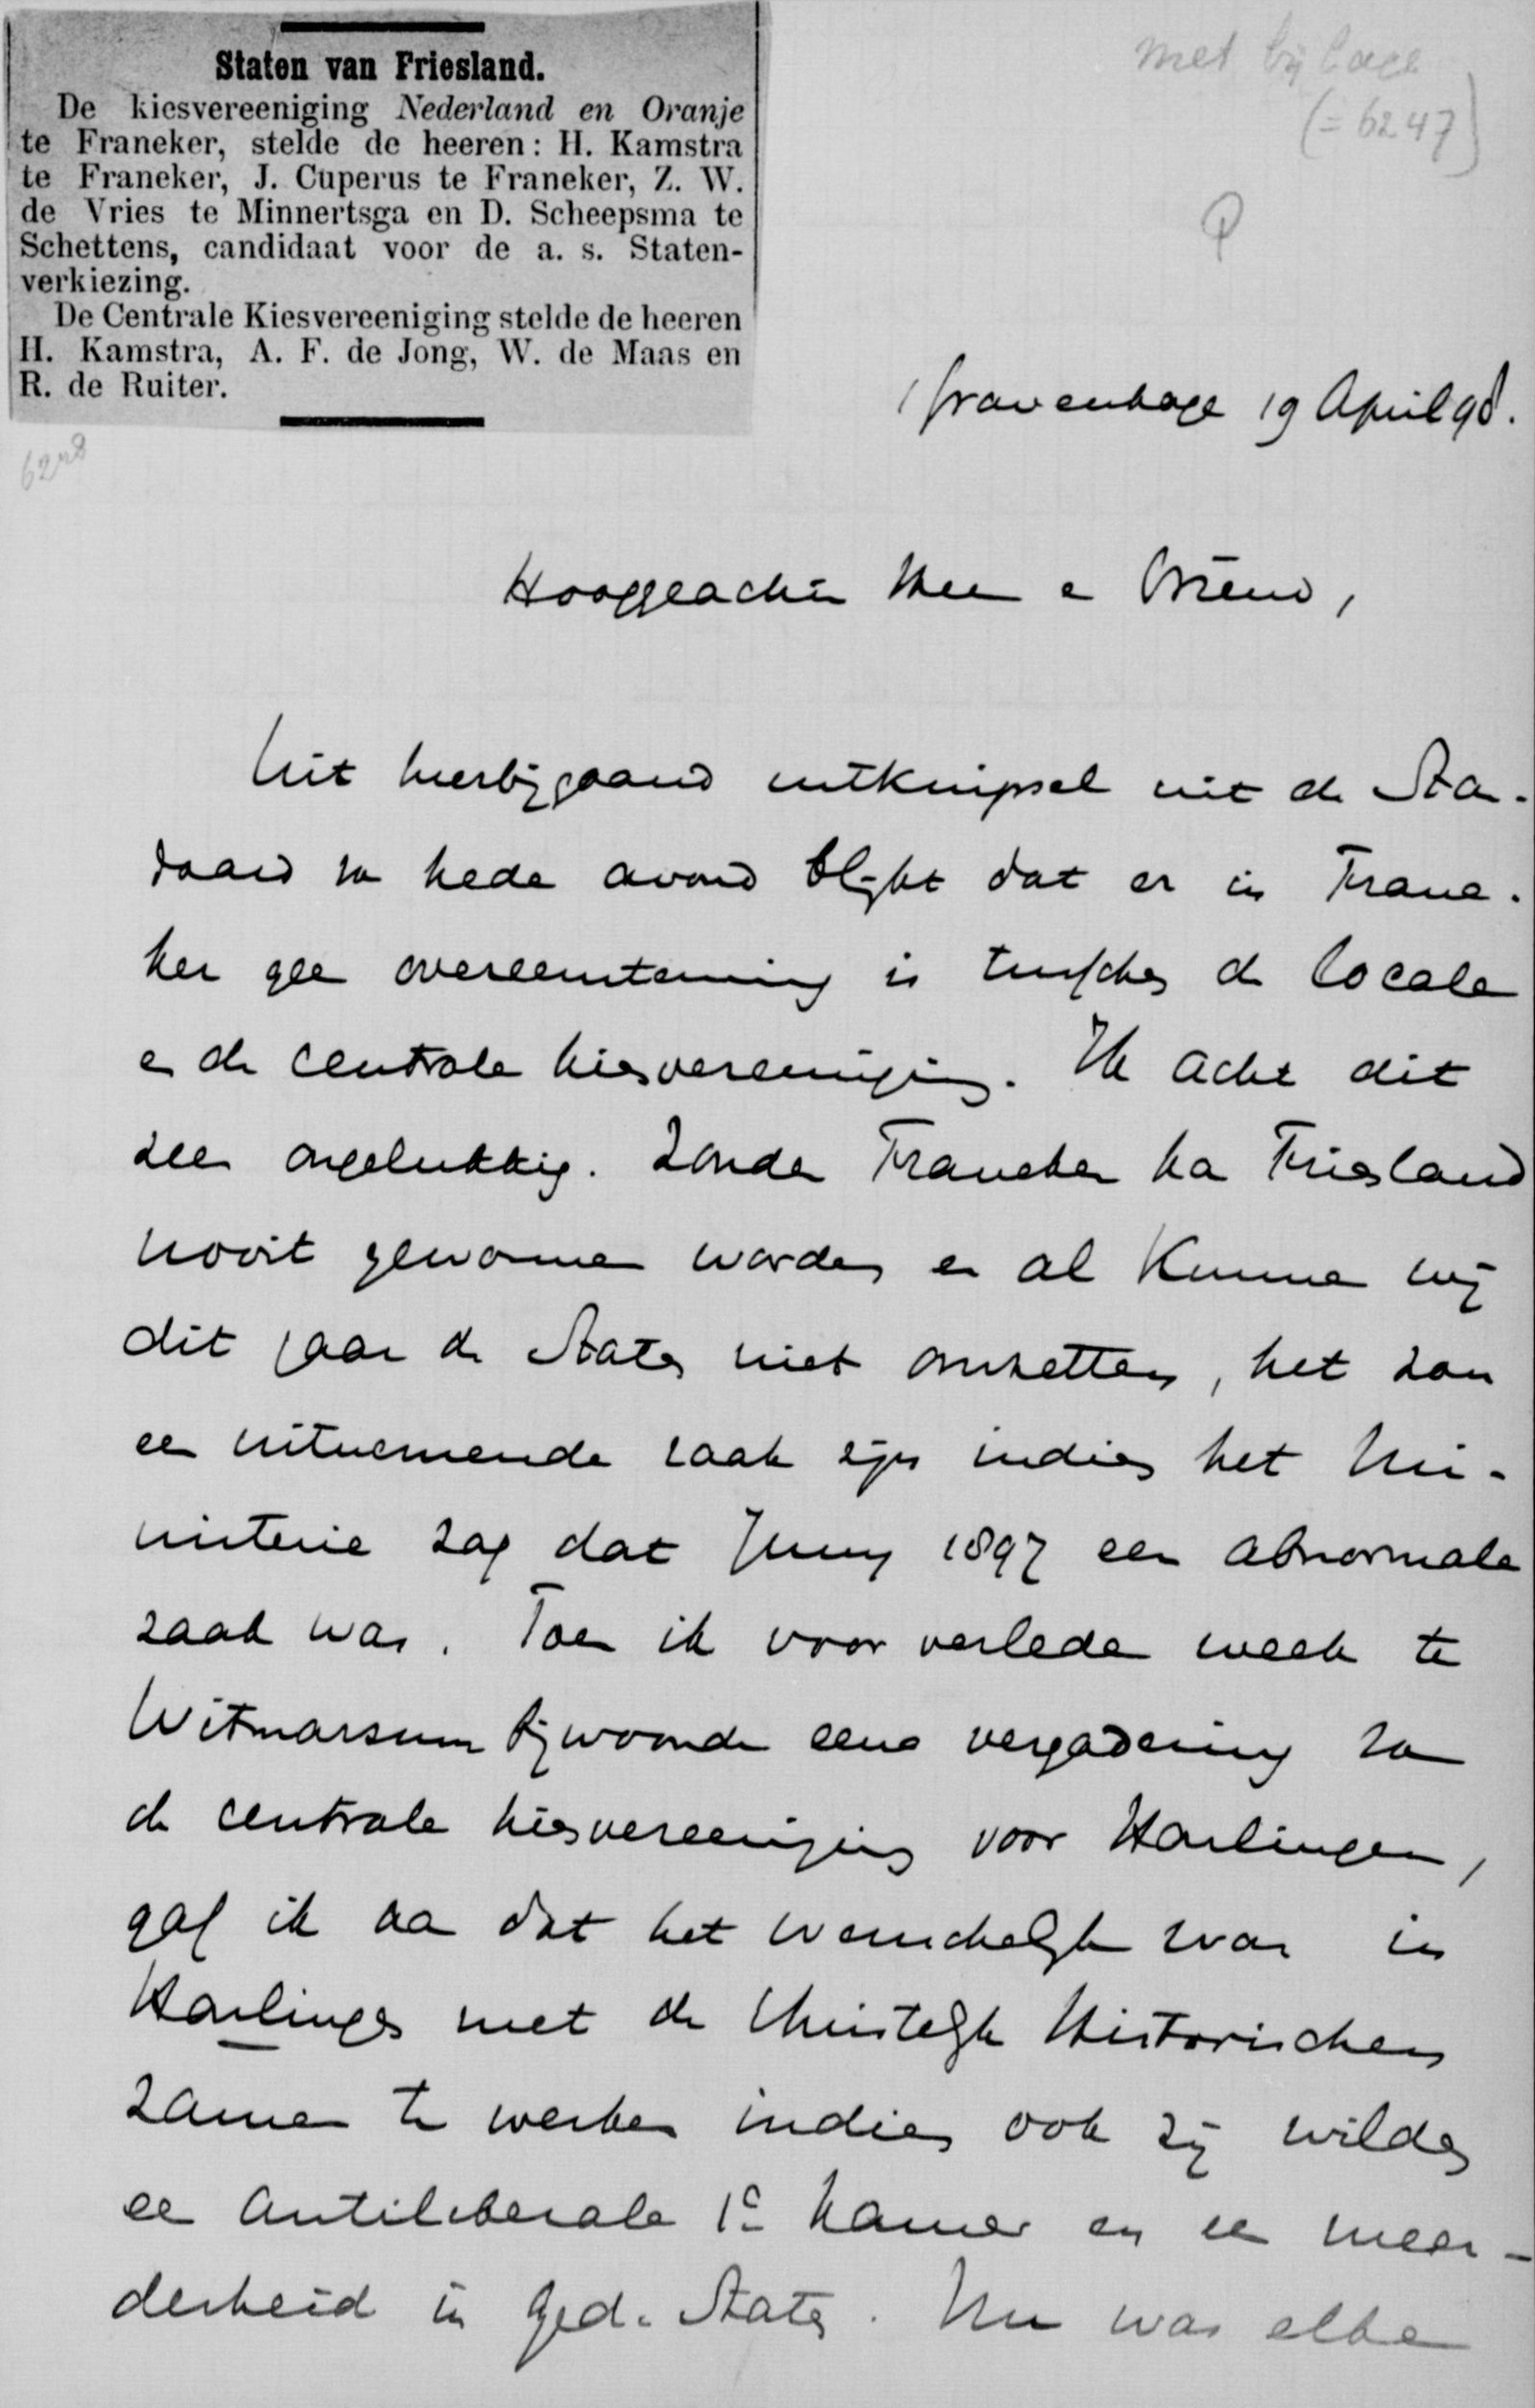 Staten van Friesland.
De kiesvereeniging Nederland en Oranje
te Franeker, stelde de heeren: H. Kamstra
te Franeker, J. Cuperus te Franeker, Z. W.
de Vries te Minnertsga en D. Scheepsma te
Schettens, candidaat voor de a. s. Staten-
verkiezing.
De Centrale Kiesvereeniging stelde de heeren
H. Kamstra, A. F. de Jong, W. de Maas en
R. de Ruiter.
met bijlage
(= 6247)
'sGravenhage 19 April 98.
6248
Hooggeachte Heer en Vriend,
Uit hierbijgaand uitknipsel uit de Stan-
daard van heden avond blijkt dat er in Frane-
ker geen overeenstemming is tusschen de locale
en de centrale kiesvereeniging. Ik acht dit
zeer ongelukkig. Zonder Franeker kan Friesland
nooit gewonnen worden en al kunnen wij
dit jaar de Staten niet omzetten, het zou
een uitnemende zaak zijn indien het Mi-
nisterie zag dat Juny 1897 een abnormale
zaak was. Toen ik voor verleden week te
Witmarsum bijwoonde eene vergadering van
de centrale kiesvereeniging voor Harlingen,
gaf ik aan dat het wenschelijk was in
Harlingen met de Christelijk Historischen
zamen te werken indien ook zij wilden
een antiliberale 1e Kamer en een meer-
derheid in Ged. Staten. Nu was elke